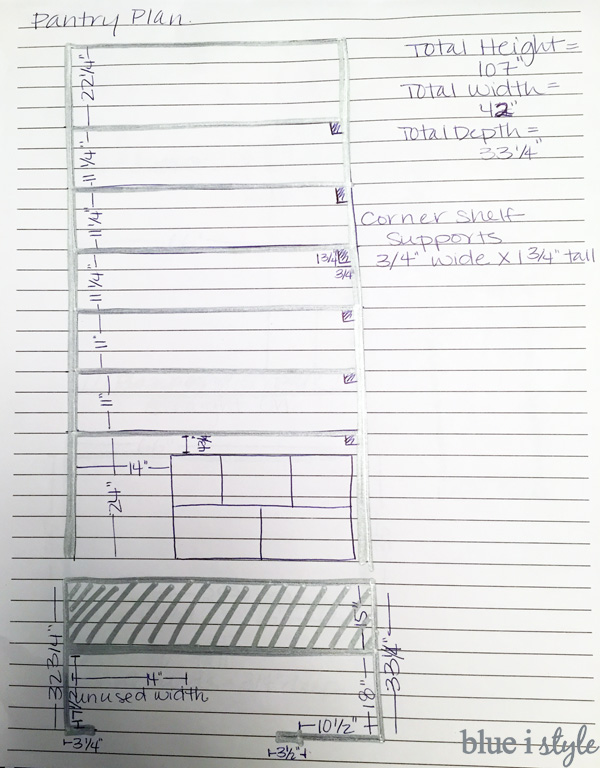 Pantry Plan.
Total Height =
107"
Total Width =
42"
Total Depth =
33 1/4"
22 1/4"
11 1/4"
11 1/4"
Corner shelf
supports
3/4" wide x 1 3/4" tall
1 3/4"
3/4"
11 1/4"
11"
11"
14"
24"
15"
32 3/4"
33 1/4"
18"
14"
unused width
17 1/2"
10 1/2"
3 1/4"
3 1/2"
blue i style